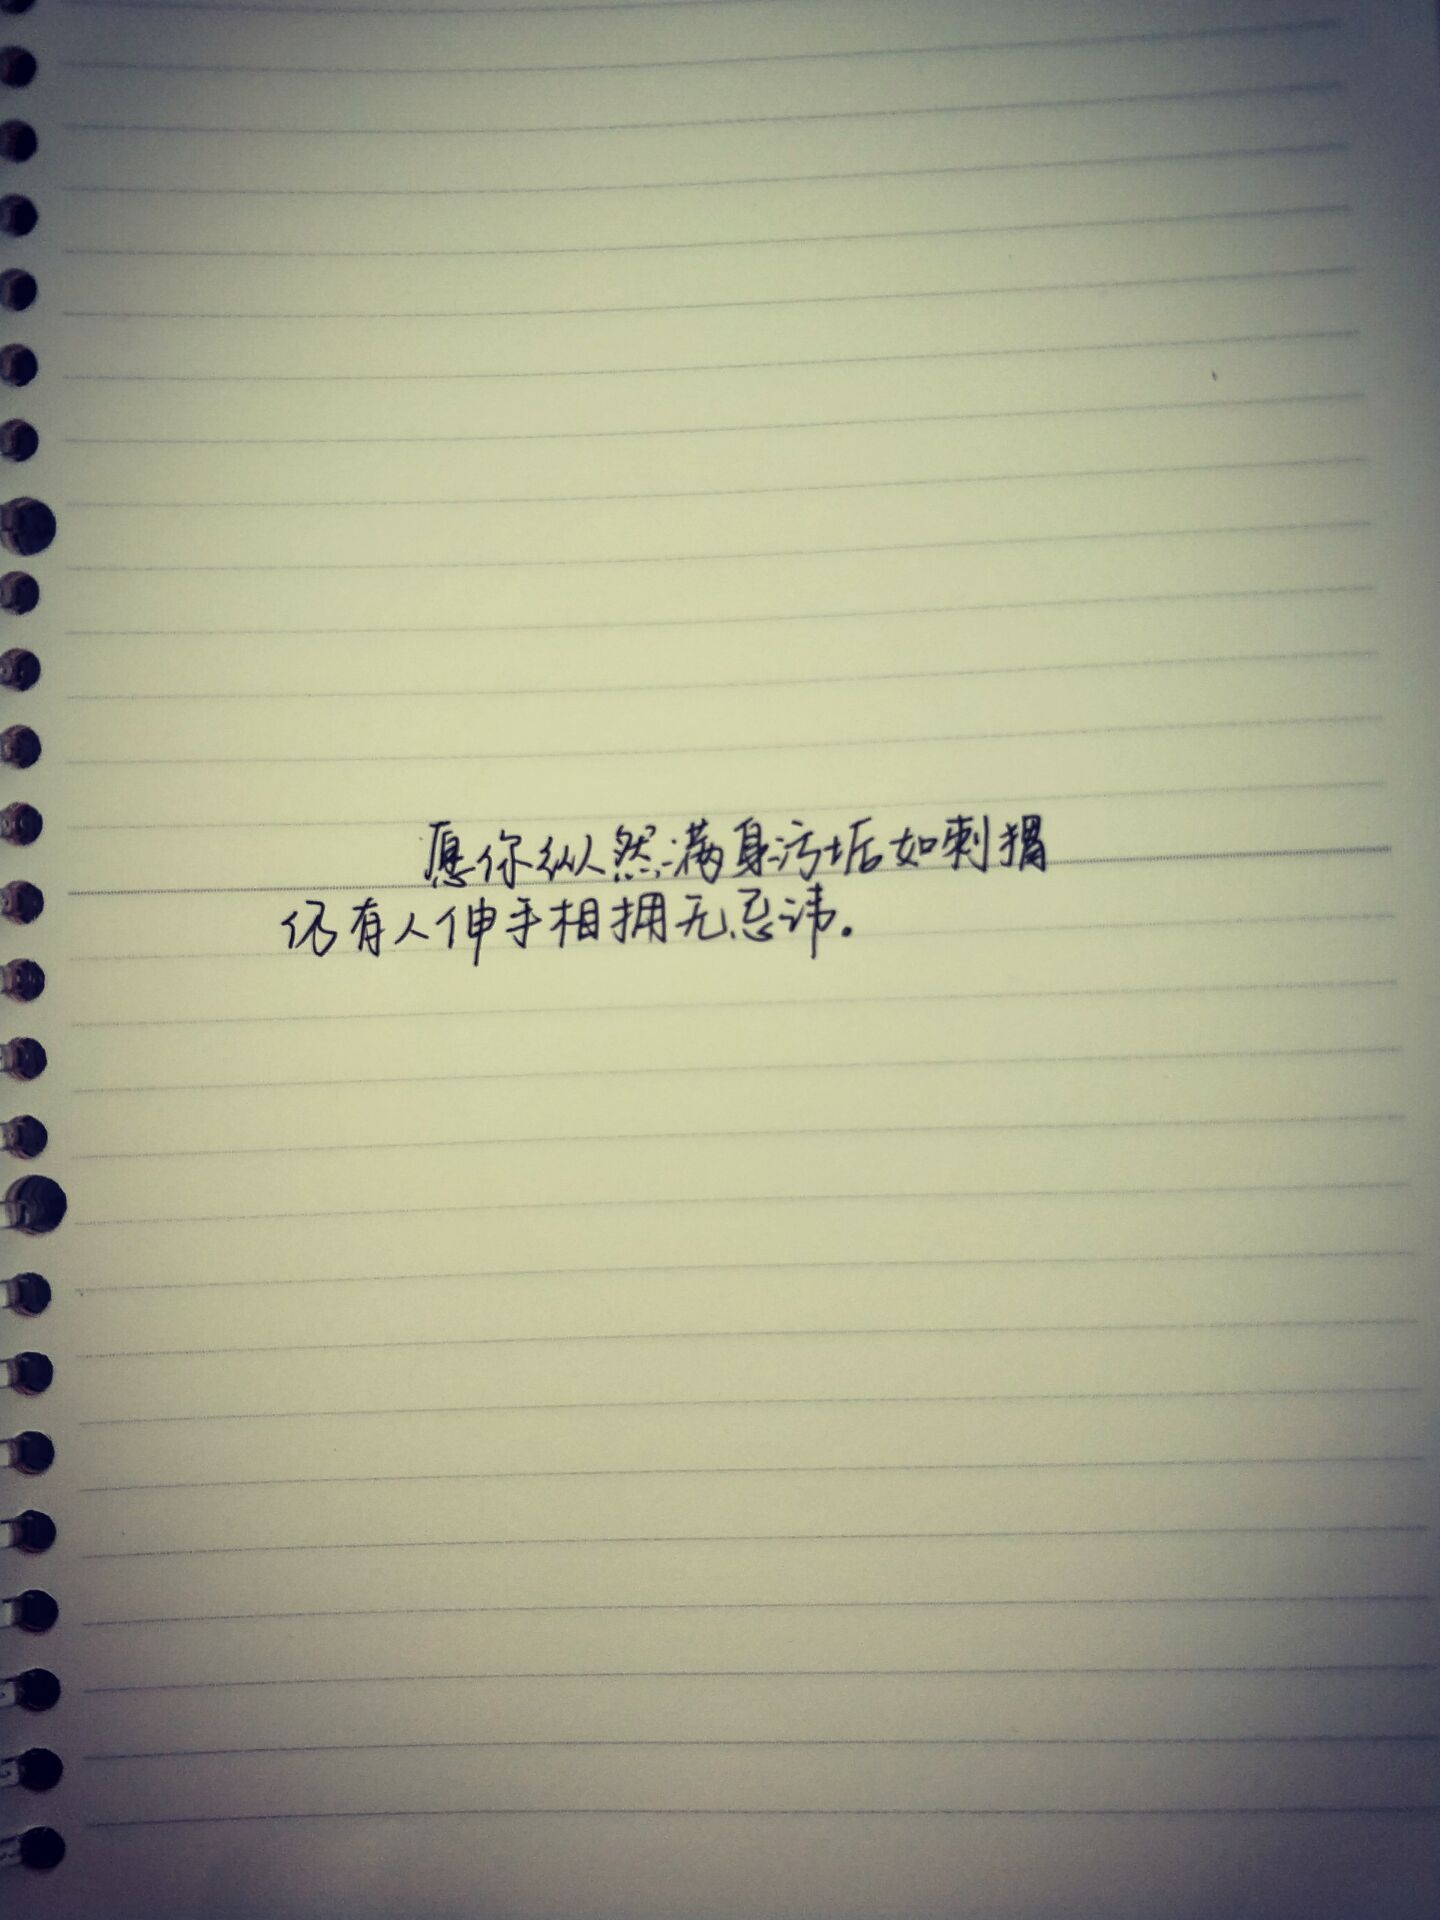 愿你纵然满身污垢如刺猬
仍有人伸手相拥无忌讳。